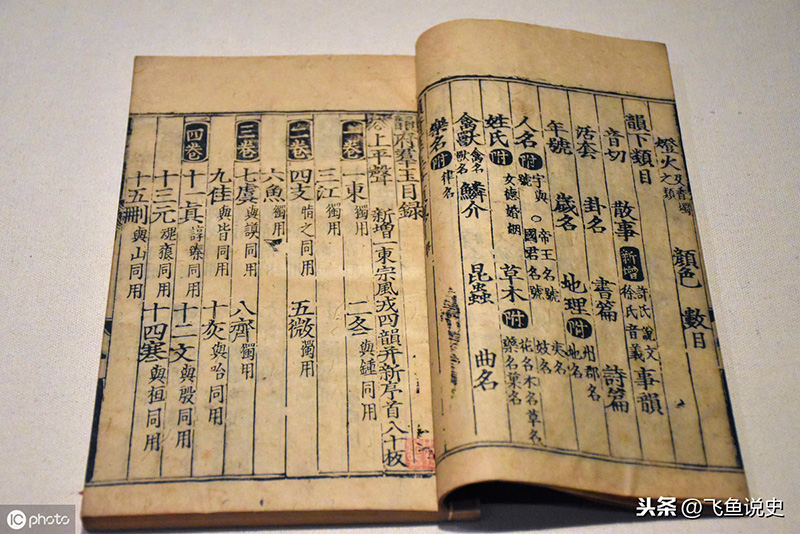 燈火及香燭之類 顏色 數目
韻下類目
音切 散事 新增 許氏說文 徐氏音義 事韻
活套 卦名 書篇 詩篇
年號 歲名 地理 附 州郡名 地名
人名 附 字與號 ○ 帝王名號 國君名號 妓名
姓氏 附 女德婚姻 草木 附 花名木名草名 藥名菓名
禽獸 禽名獸名 鱗介 昆蟲 曲名
樂名 附 律名
韻府羣玉目錄
上平聲 新增一東宗風戎四韻并新序首八十枚
一卷 一東 獨用 二冬 與鍾同用
三江 獨用
二卷 四支 脂之同用 五微 獨用
六魚 獨用
三卷 七虞 與模同用 八齊 獨用
九佳 與皆同用 十灰 與咍同用
四卷 十一真 諄臻同用 十二文 與殷同用
十三元 魂痕同用 十四寒 與桓同用
十五刪 與山同用
IC photo
头条 @飞鱼说史